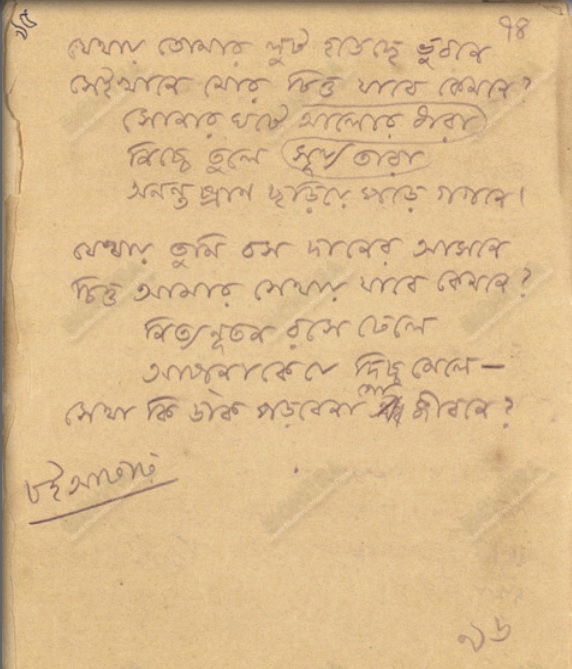 ১৫
৭৪
যেথায় তোমার লুট হতেছে ভুবনে
সেইখানে মোর চিত্ত যাবে কেমনে?
সোনার ঘটে আলোর ধারা
নিচ্ছে তুলে সূর্য্য তারা
অনন্ত প্রাণ ছড়িয়ে পড়ে গগনে।
যেথায় তুমি বস দানের আসনে
চিত্ত আমার সেথায় যাবে কেমনে?
নিত্য নূতন রসে ঢেলে
আপনাকে যে দিচ্চ মেলে—
সেথা কি ডাক পড়বেনা গো জীবনে?
৮ই আষাঢ়
১৬